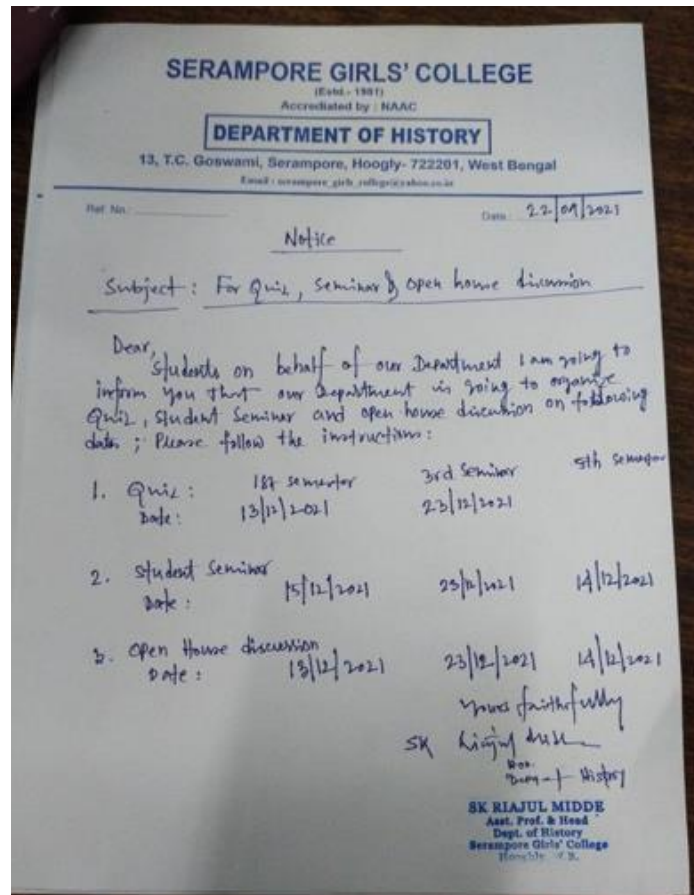 SERAMPORE GIRLS' COLLEGE
(Estd.- 1981)
Accrediated by : NAAC
DEPARTMENT OF HISTORY
13, T.C. Goswami, Serampore, Hoogly- 722201, West Bengal
Email : serampore_girls_college@yahoo.co.in
Ref. No.: Date 22/09/2021
Notice
Subject : For Quiz, Seminar & open house discussion
Dear,
Students on behalf of our Department I am going to
inform you that our Department is going to organize
Quiz, Student Seminar and open house discussion on following
date ; Please follow the instructions :
1. Quiz : 1st semester 3rd Seminar 5th Semester
Date : 13/12/2021 23/12/2021
2. Student Seminar
Date : 15/12/2021 23/12/2021 14/12/2021
3. Open House discussion
Date : 13/12/2021 23/12/2021 14/12/2021
Yours faithfully
SK Riajul
History
SK RIAJUL MIDDE
Asst. Prof. & Head
Dept. of History
Serampore Girls' College
Hooghly, W.B.